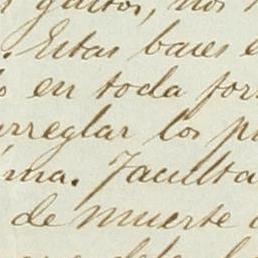 gastos, nos
. Estas bases e
en toda for
arreglar los p
ma. Faculta
de muerte